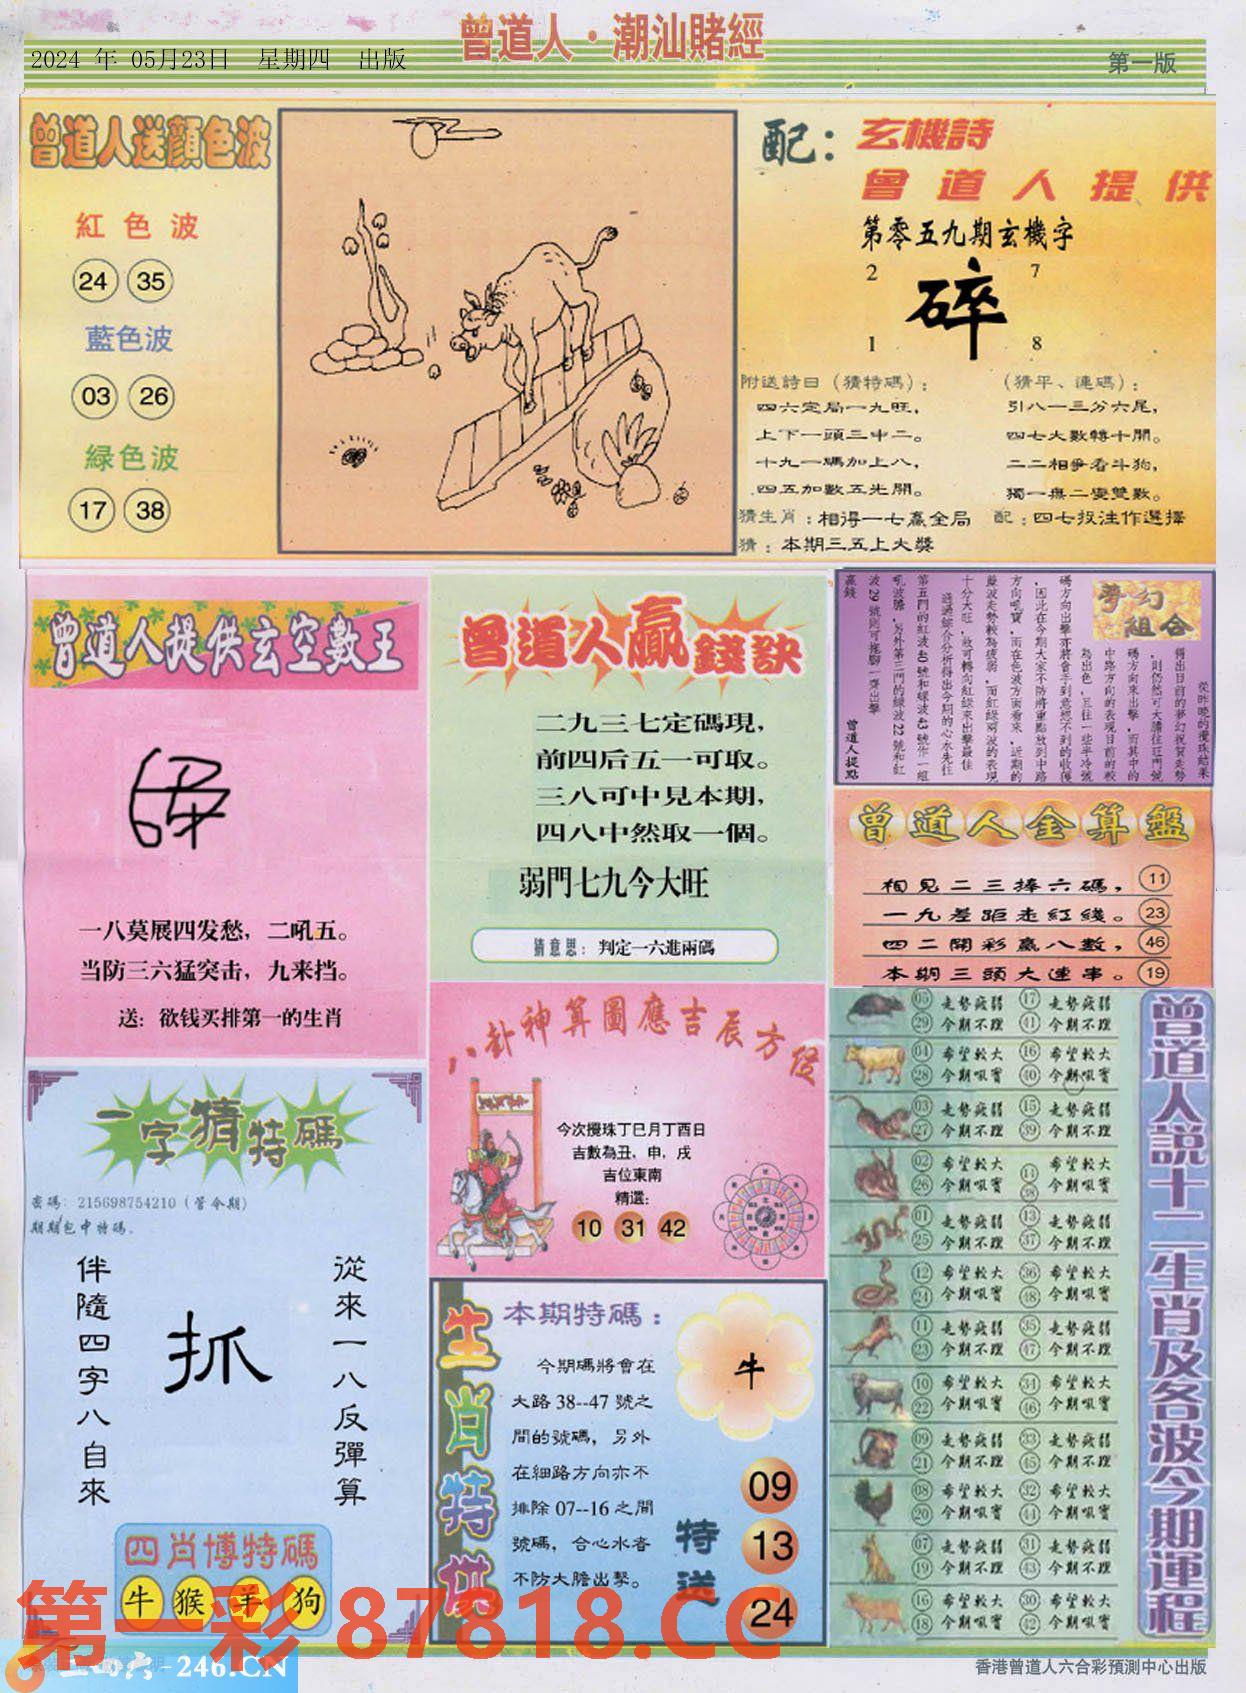 曾道人·潮汕賭經
2024 年 05月23日 星期四 出版
第一版
曾道人送顏色波
紅色波
24 35
藍色波
03 26
綠色波
17 38
配：玄機詩
曾道人提供
第零五九期玄機字
2 7
碎
1 8
附送詩曰（猜特碼）：
四六定局一九旺，
上下一頭三中二。
十九一碼加上八，
四五加數五光開。
（猜平、連碼）：
引八一三分六尾，
四七大數轉十開。
二二相爭看斗狗，
獨一無二變雙數。
猜生肖：相得一七贏全局
配：四七投注作選擇
猜：本期三五上大獎
曾道人提供玄空數王
一八莫展四发愁，二吼五。
当防三六猛突击，九来挡。
送：欲钱买排第一的生肖
曾道人贏錢訣
二九三七定碼現，
前四后五一可取。
三八可中見本期，
四八中然取一個。
弱門七九今大旺
猜意思：判定一六進兩碼
夢幻組合
從昨晚的攪珠結果
得出目前的夢幻祝賀走勢
，則仍然可大膽往旺門號
碼方向來出擊，而其中的
中路方向的表現目前的較
為出色，且往一些半冷號
碼方向出擊亦將會手到意想不到的收獲
，因此在今期大家不防將重點放到中路
方向吼寶，而在色波方面看來，近期的
藍波走勢較為疲弱，而紅綠兩波的表現
十分大旺，故可轉向紅綠來出擊最佳
通過綜合分析得出今期的心水先往
第五門的紅波40號和綠波43號作一組
吼波膽，另外第三門的綠波22號和紅
波29號則可拖腳一齊出擊
贏錢
曾道人提點
曾道人金算盤
相見二三捧六碼， 11
一九差距走紅綫。 23
四二開彩贏八數， 46
本期三頭大連串。 19
八卦神算圖應吉辰方位
今次攪珠丁巳月丁酉日
吉數為丑，申，戌
吉位東南
精選：
10 31 42
一字猜特碼
密碼：215698754210（管今期）
期期包中特碼。
從來一八反彈算
抓
伴隨四字八自來
四肖博特碼
牛 猴 羊 狗
生肖特供
本期特碼：
今期碼將會在
大路 38--47 號之
間的號碼，另外
在細路方向亦不
排除 07--16 之間
號碼，合心水者
不防大膽出擊。
牛
特送
09
13
24
曾道人説十二生肖及各波今期運程
05 走勢疲弱 17 走勢疲弱
29 今期不理 41 今期不理
04 希望較大 16 希望較大
28 今期吼實 40 今期吼實
03 走勢疲弱 15 走勢疲弱
27 今期不理 39 今期不理
02 希望較大 14 希望較大
26 今期吼實 38 今期吼實
01 走勢疲弱 13 走勢疲弱
25 今期不理 37 今期不理
12 希望較大 36 希望較大
24 今期吼實 48 今期吼實
11 走勢疲弱 35 走勢疲弱
23 今期不理 47 今期不理
10 希望較大 34 希望較大
22 今期吼實 46 今期吼實
09 走勢疲弱 33 走勢疲弱
21 今期不理 45 今期不理
08 希望較大 32 希望較大
20 今期吼實 44 今期吼實
07 走勢疲弱 31 走勢疲弱
19 今期不理 43 今期不理
16 希望較大 30 希望較大
18 今期吼實 42 今期吼實
第一彩 87818.CC
-246.CN
香港曾道人六合彩預測中心出版